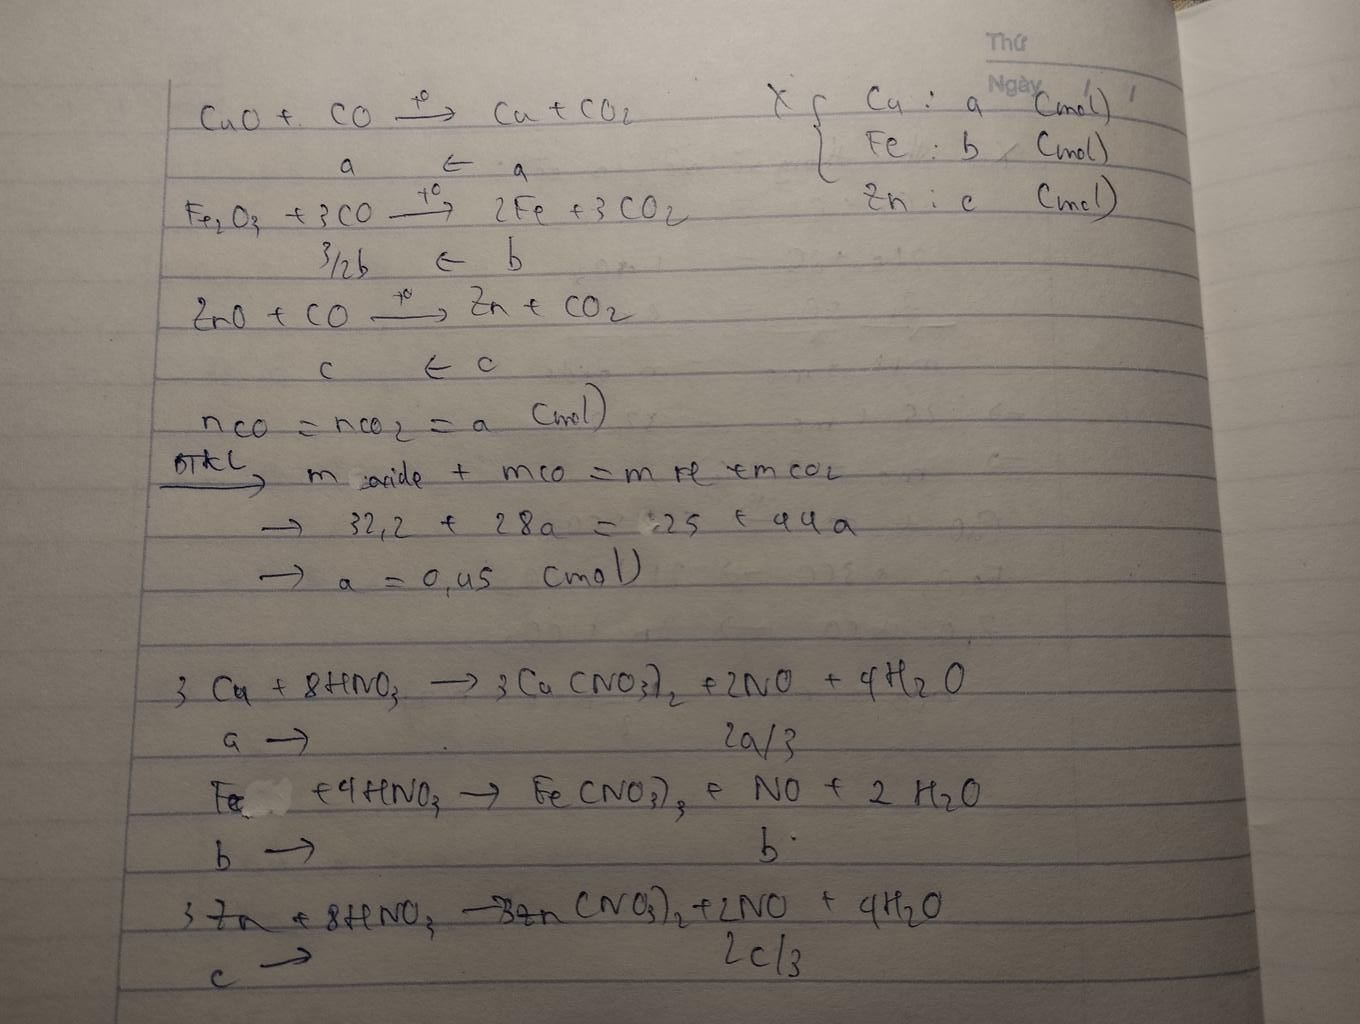 Thứ
Ngày / /
CuO + CO →(t°) Cu + CO2
a ← a
Fe2O3 + 3CO →(t°) 2Fe + 3CO2
3/2b ← b
ZnO + CO →(t°) Zn + CO2
c ← c
X { Cu : a (mol)
Fe : b (mol)
Zn : c (mol)
nCO = nCO2 = a (mol)
BTKL → m oxide + mCO = m + mCO2
→ 32,2 + 28a = 25 + 44a
→ a = 0,45 (mol)
3 Cu + 8HNO3 → 3Cu(NO3)2 + 2NO + 4H2O
a → 2a/3
Fe + 4HNO3 → Fe(NO3)3 + NO + 2 H2O
b → b
3 Zn + 8HNO3 → 3Zn(NO3)2 + 2NO + 4H2O
c → 2c/3